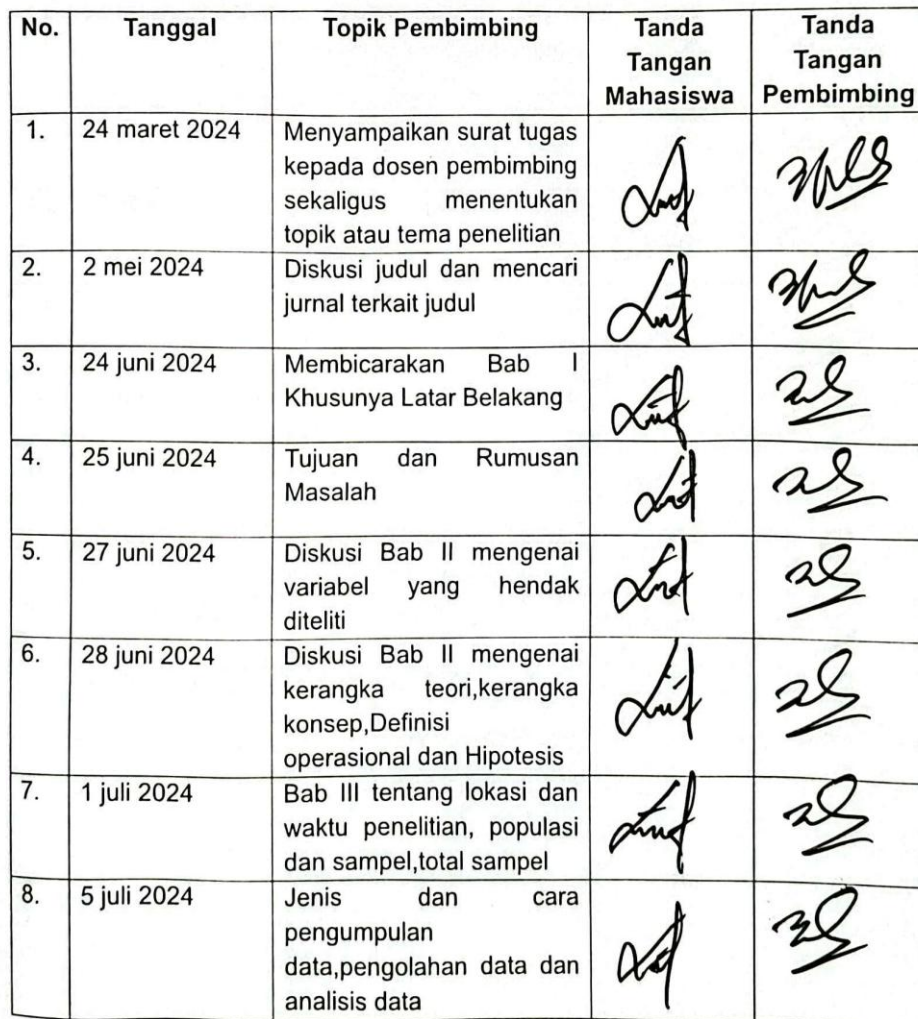 No. Tanggal Topik Pembimbing Tanda Tanda
Tangan Tangan
Mahasiswa Pembimbing
1. 24 maret 2024 Menyampaikan surat tugas
kepada dosen pembimbing
sekaligus menentukan
topik atau tema penelitian
2. 2 mei 2024 Diskusi judul dan mencari
jurnal terkait judul
3. 24 juni 2024 Membicarakan Bab I
Khusunya Latar Belakang
4. 25 juni 2024 Tujuan dan Rumusan
Masalah
5. 27 juni 2024 Diskusi Bab II mengenai
variabel yang hendak
diteliti
6. 28 juni 2024 Diskusi Bab II mengenai
kerangka teori,kerangka
konsep,Definisi
operasional dan Hipotesis
7. 1 juli 2024 Bab III tentang lokasi dan
waktu penelitian, populasi
dan sampel,total sampel
8. 5 juli 2024 Jenis dan cara
pengumpulan
data,pengolahan data dan
analisis data